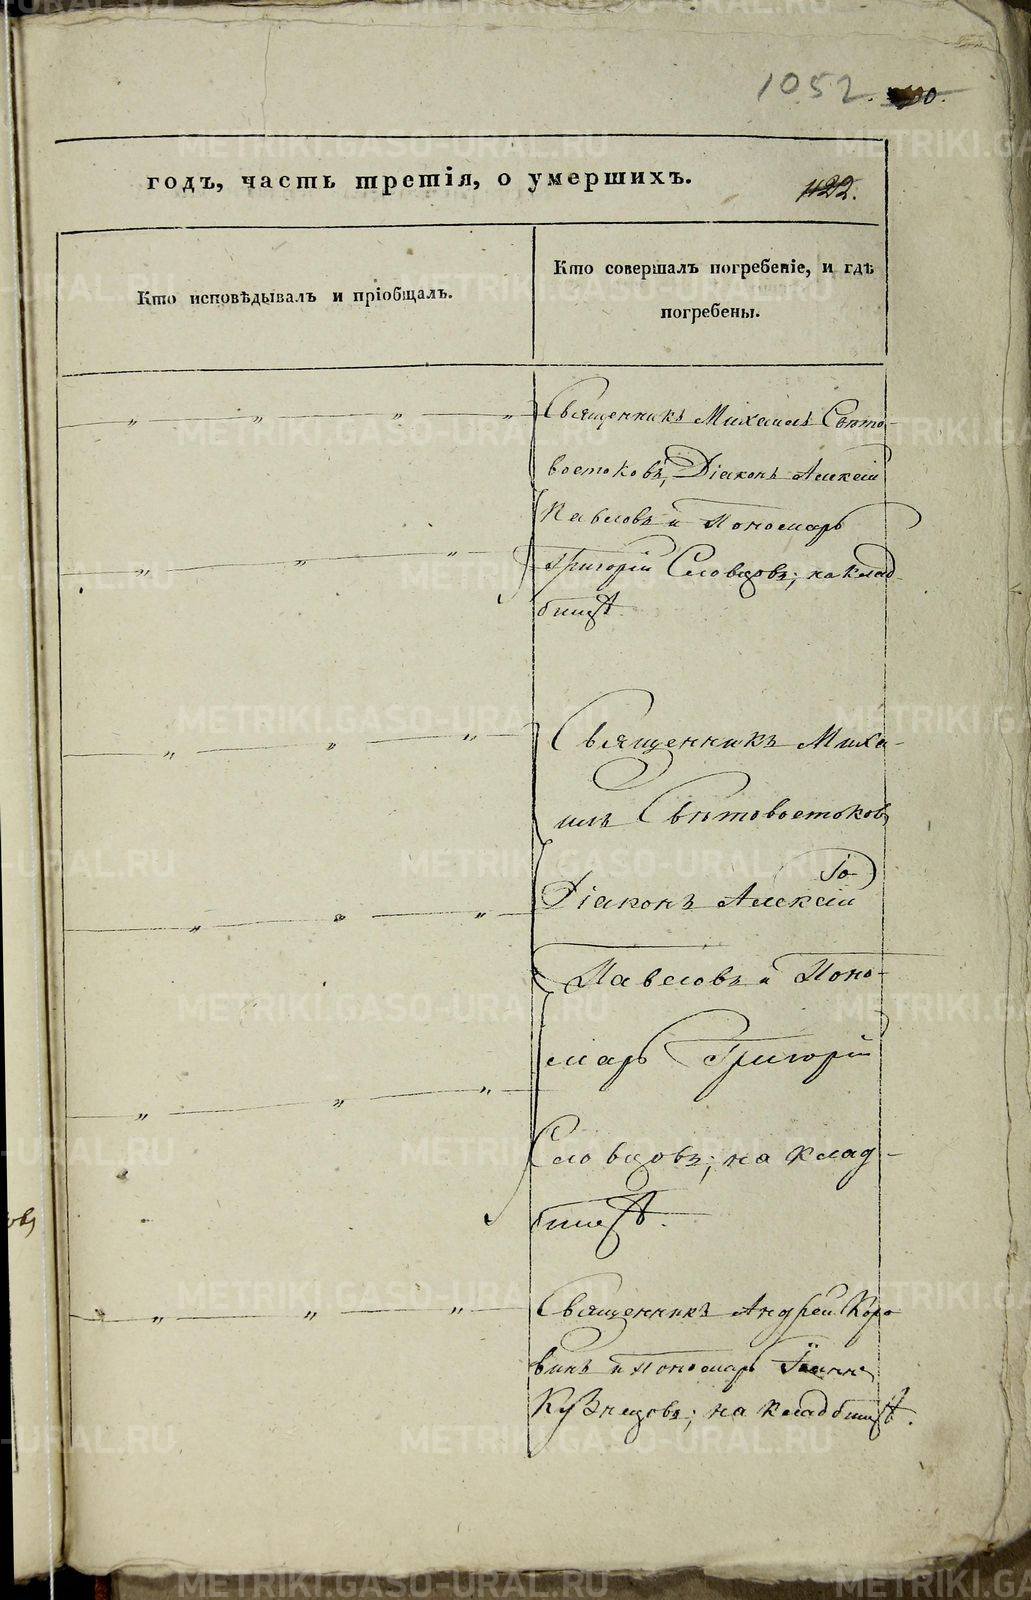 1052.
годъ, часть третія, о умершихъ.
422.
Кто исповѣдывалъ и пріобщалъ.
Кто совершалъ погребеніе, и гдѣ
погребены.
Священникъ Михаилъ Свѣто-
востоковъ, Діаконъ Алексѣй
Павловъ и Пономарь
Григорій Словцовъ; на клад-
бищѣ.
Священникъ Миха-
илъ Свѣтовостоковъ
Діаконъ Алексѣй
Павловъ и Поно-
марь Григорій
Словцовъ; на клад-
бищѣ.
Священникъ Андрей Коро
винъ и пономарь Іоаннъ
Кузнецовъ; на кладбищѣ.
METRIKI.GASO-URAL.RU